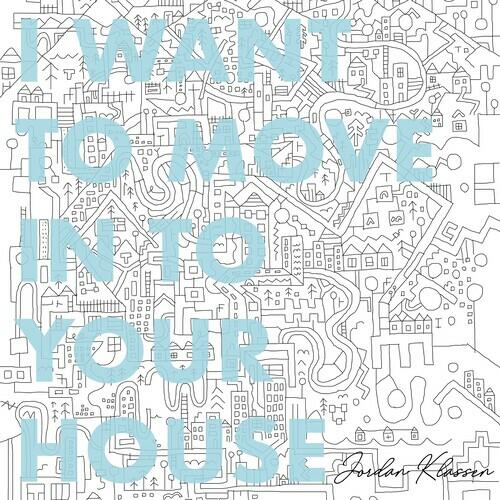 I WANT
TO MOVE
IN TO
YOUR
HOUSE
Jordan Klassen